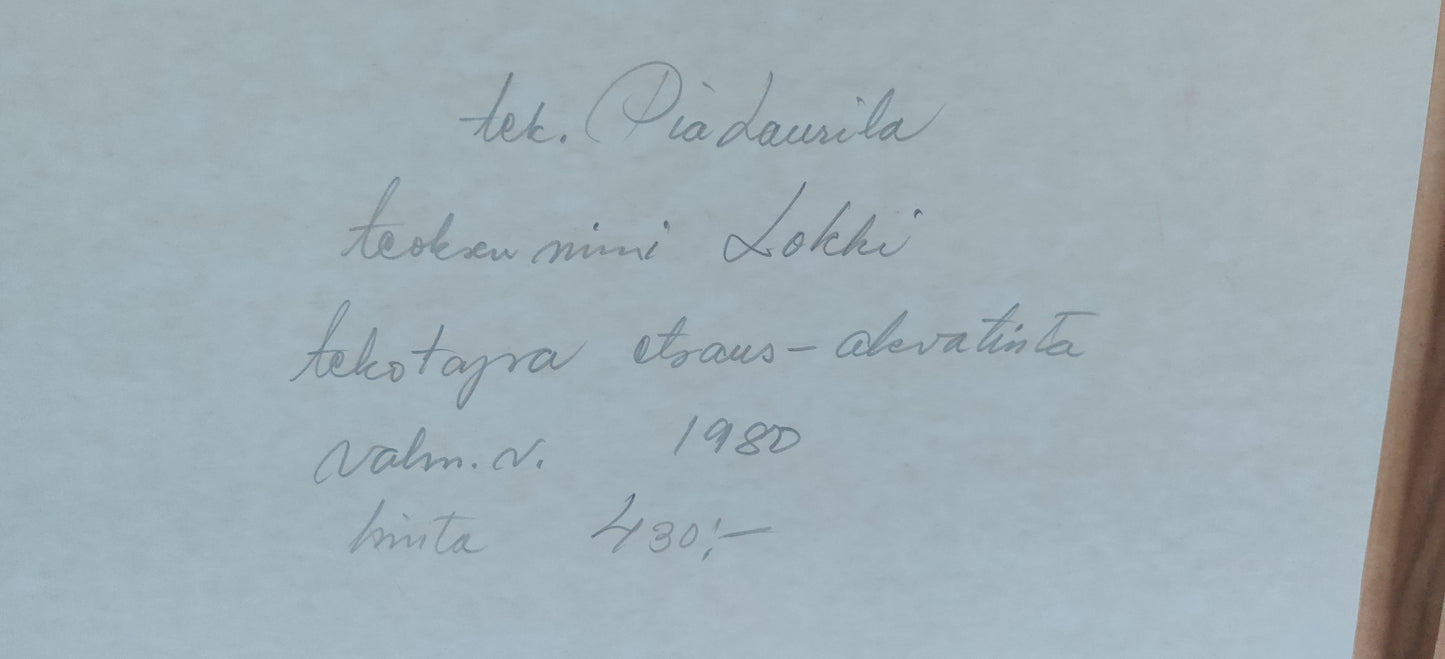 tek. Pia Laurila
teoksen nimi Lokki
tekotapa etsaus - akvatinta
valm. v. 1980
hinta 430:-